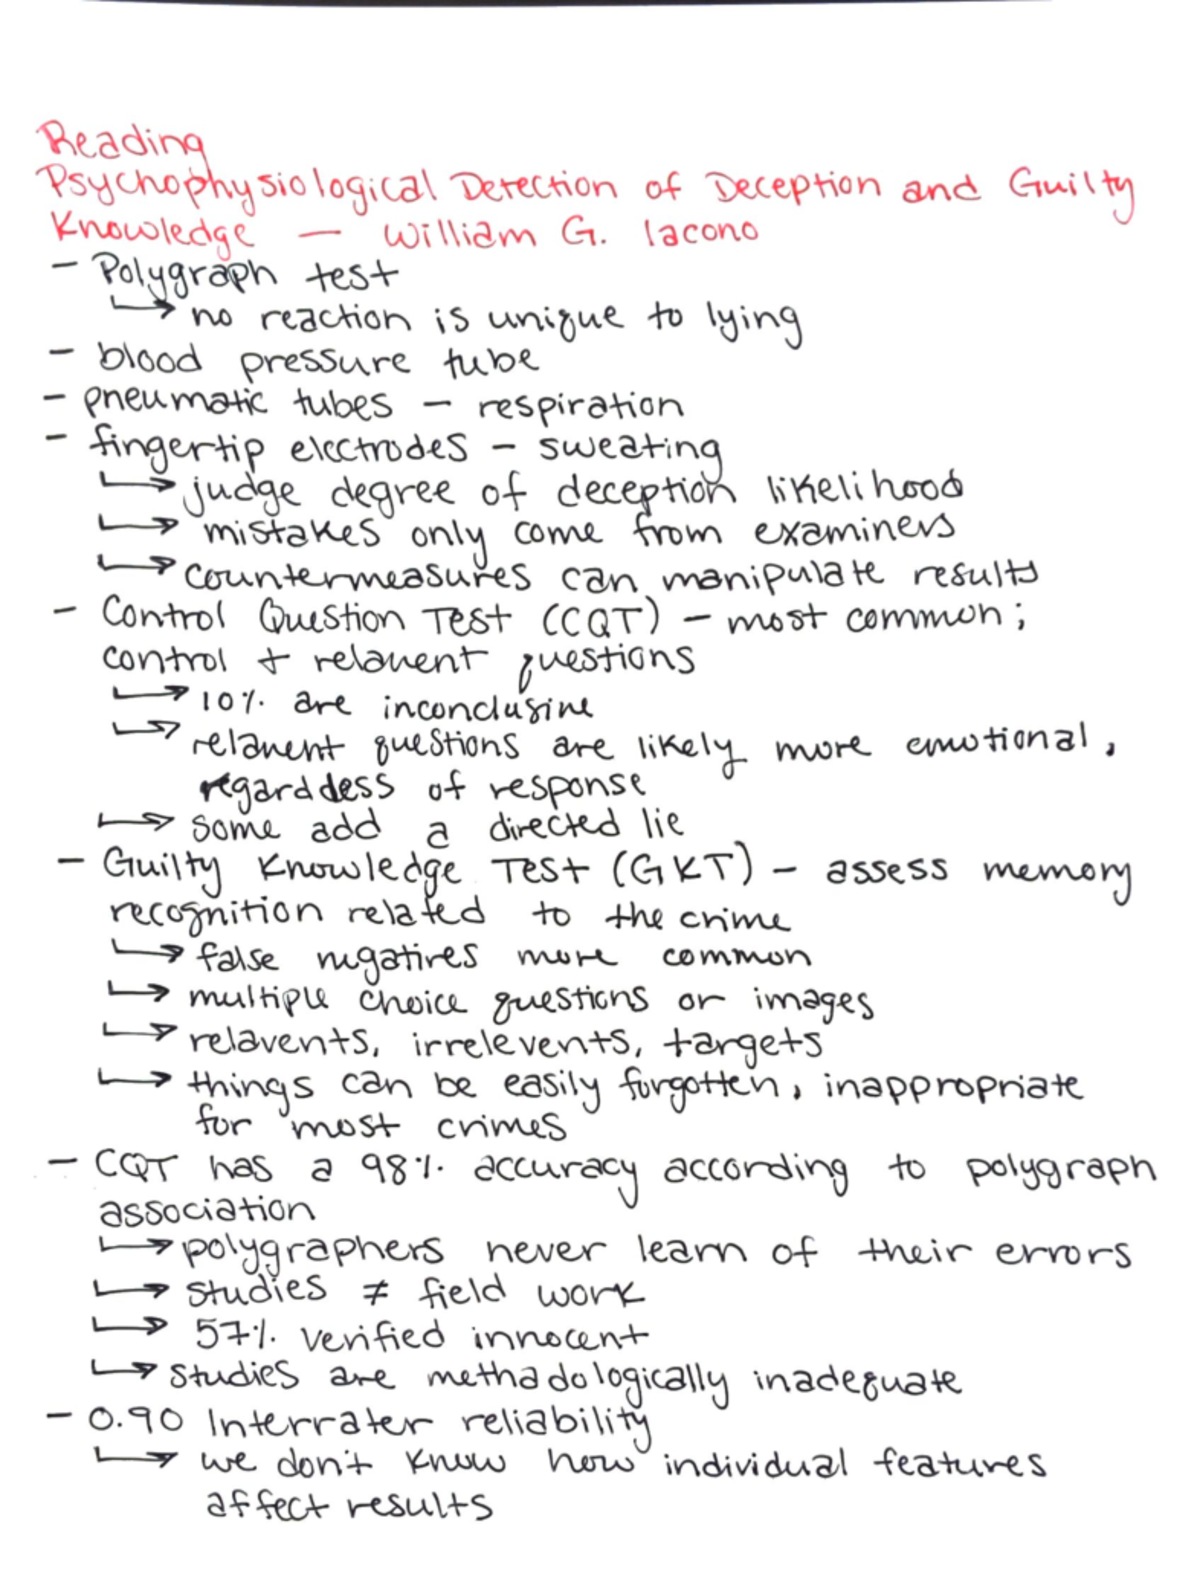 Reading
Psychophysiological Detection of Deception and Guilty
Knowledge — William G. Iacono
- Polygraph test
↳ no reaction is unique to lying
- blood pressure tube
- pneumatic tubes - respiration
- fingertip electrodes - sweating
↳ judge degree of deception likelihood
↳ mistakes only come from examiners
↳ countermeasures can manipulate results
- Control Question Test (CQT) - most common;
control + relavent questions
↳ 10% are inconclusive
↳ relavent questions are likely more emotional,
regarddess of response
↳ some add a directed lie
- Guilty Knowledge Test (GKT) - assess memory
recognition related to the crime
↳ false negatives more common
↳ multiple choice questions or images
↳ relavents, irrelevents, targets
↳ things can be easily forgotten, inappropriate
for most crimes
- CQT has a 98% accuracy according to polygraph
association
↳ polygraphers never learn of their errors
↳ studies ≠ field work
↳ 57% verified innocent
↳ studies are methadologically inadequate
- 0.90 Interrater reliability
↳ we don't know how individual features
affect results